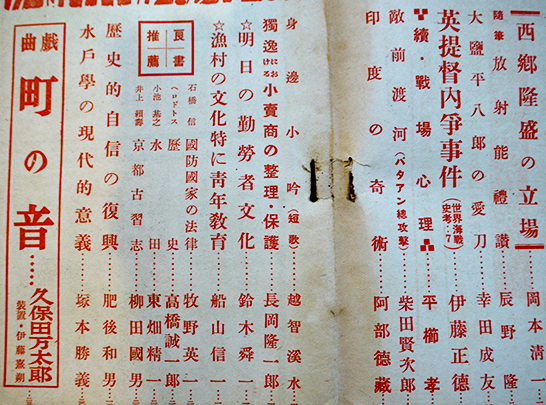 西郷隆盛の立場……岡本清一
隨筆 放射能禮讃……辰野隆
大鹽平八郎の愛刀……幸田成友
英提督内爭事件(世界海戰史考・7)……伊藤正德
續・戰場心理……平櫛孝
敵前渡河(バタアン總攻擊)……柴田賢次郎
印度の奇術……阿部德藏
身邊小吟(短歌)……越智溪水
☆明日の勤勞者文化……鈴木舜一
獨逸に於ける小賣商の整理・保護……長岡隆一郎
☆漁村の文化特に靑年敎育……船山信一
良書推薦
石橋信 國防國家の法律……牧野英一
ヘロドトス 歷史……高橋誠一郎
小池基之 水田……東畑精一
井上頼壽 京都古習志……柳田國男
歷史的自信の復興……肥後和男
水戶學の現代的意義……塚本勝義
戲曲 町の音……久保田万太郎
装置・伊藤熹朔